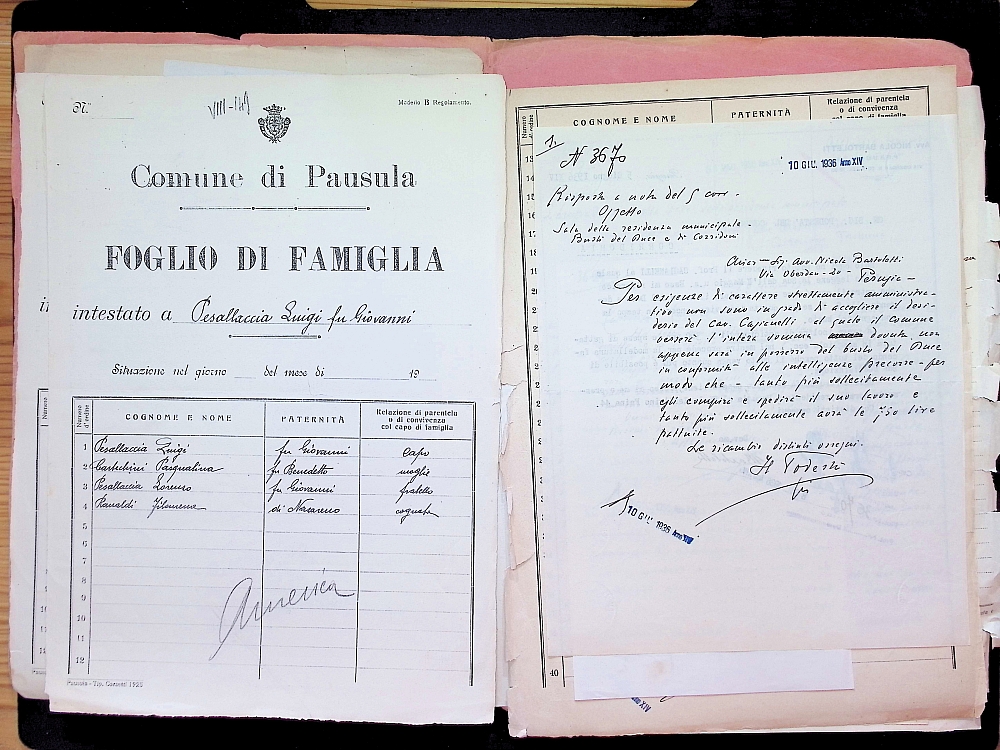 N.°
VIII-149
Modello B Regolamento.
Comune di Pausula
FOGLIO DI FAMIGLIA
intestato a Pesallaccia Luigi fu Giovanni
Situazione nel giorno del mese di 19
Numero d'ordine COGNOME E NOME PATERNITÀ Relazione di parentela o di convivenza col capo di famiglia
1 Pesallaccia Luigi fu Giovanni capo
2 Pasqualina fu Benedetto moglie
3 Pesallaccia Lorenzo fu Giovanni fratello
4 Ranaldi Filomena di Nazareno cognata
5
6
7
8
9
10
11
12
America
Pausula - Tip. 1925
Numero d'ordine COGNOME E NOME PATERNITÀ Relazione di parentela o di convivenza col capo di famiglia
1.
N 3670
10 GIU. 1936 Anno XIV
Risposta a nota del 5 corr.
Oggetto
Sala della residenza municipale -
Busti del Duce e di Corridoni
Sig. Avv. Nicola Bartoletti
Via Oberdan - 20 - Perugia -
Per esigenze di carattere strettamente amministra-
tivo non sono in grado di accogliere il desi-
derio del Cav. al quale il Comune
verserà l'intera somma dovuta non
appena sarà in possesso del busto del Duce
in conformità alle intelligenze precorse - per
modo che - tanto più sollecitamente
egli compirà e spedirà il suo lavoro e
tanto più sollecitamente avrà le 750 lire
pattuite.
Le ricambio distinti ossequi.
Il Podestà
10 GIU. 1936 Anno XIV
40